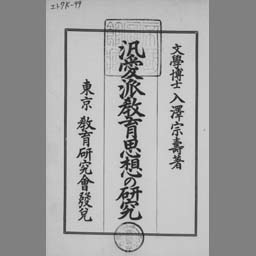 エト7K-99
文學博士 入澤宗壽著
汎愛派敎育思想の硏究
東京 敎育硏究會發兌